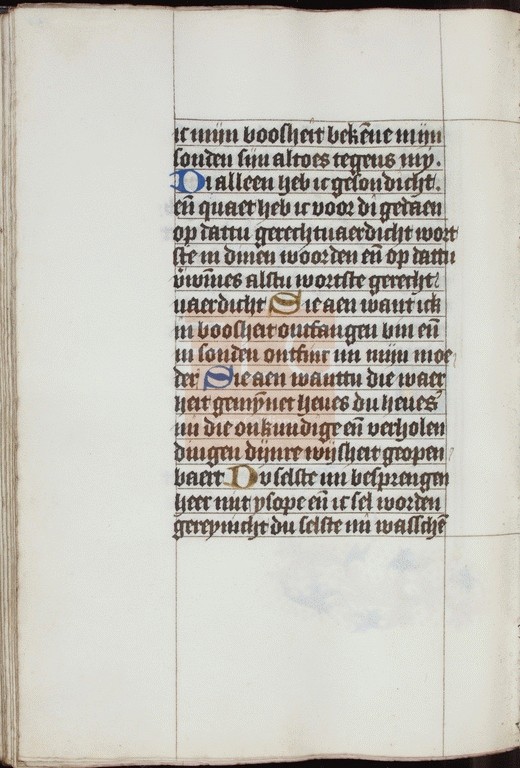 ic mijn boosheit bekēne mijn
sonden sijn altoes tegens my.
Di alleen heb ic gesondicht.
eñ quaet heb ic voor di gedaen
op dattu gerechtuaerdicht wort
ste in dinen woorden eñ op dattu
v̄wīnes alstu wortste gerecht
uaerdicht Sie aen want ick
in boosheit ontfangen bin eñ
in sonden ontfinc mi mijn moe
der Sie aen wanttu die waer
heit gemȳnet heues du heues
mi die onkundige eñ verholen
dingen dijnre wijsheit geopen
baert Du selste mi besprengen
heer mit ysope eñ ic sel worden
gereynicht du selste mi wasschē